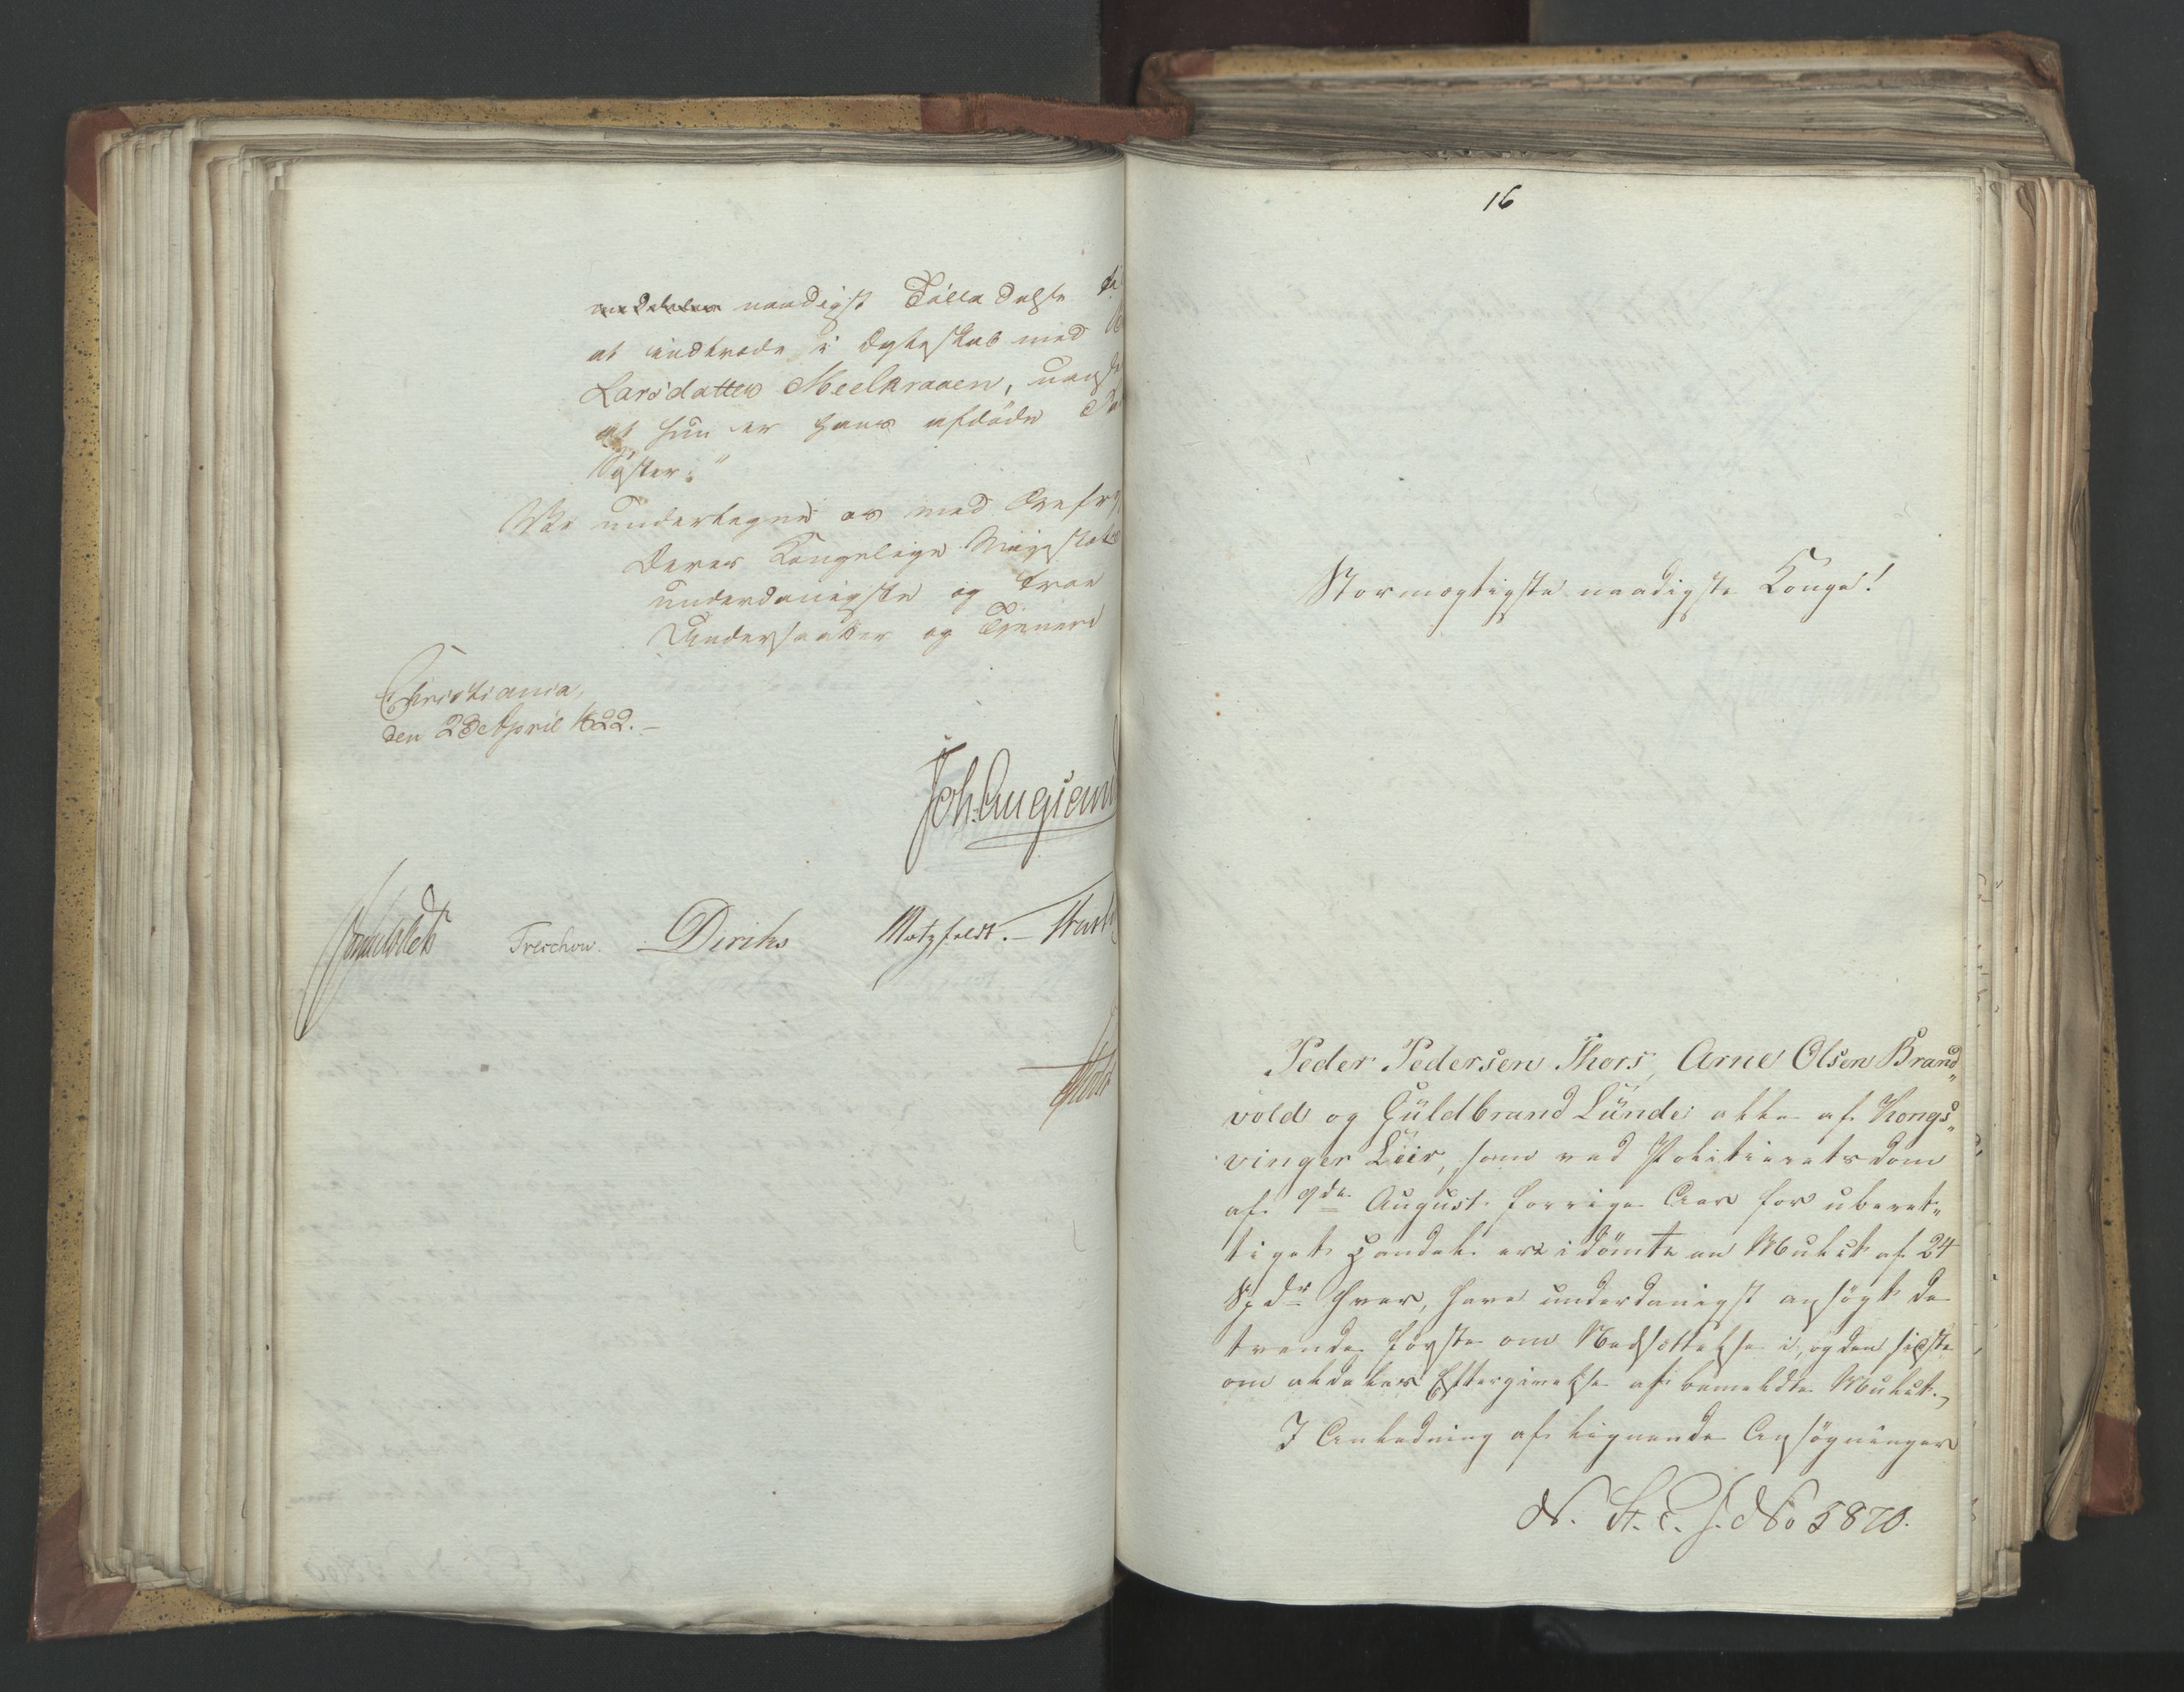 meddeles naadigst Tilladelse til
at indtræde i Ægteskab med
Larsdatter Meelkraaen, uanset
at hun er hans afdøde
Søster."
Vi undertegne os med Ærefrygt
Deres Kongelige Majestæts
underdanigste og troe
Undersaatter og Tjenere
Christiania,
den 23 April 1822. –
Joh. Aug. Sand
Sommerhielm Treschow. Diriks Motzfeldt. –
16
Stormægtigste naadigste Konge!
Peder Pedersen Thors, Arne Olsen Brand„
vold og Guldbrand Lunde: alle af Kongs„
vinger Leir, som ved Politieretsdom
af 9de August forrige Aar for uberet„
tiget Handel ere idømte en Mulct af 24
Spdr hver, have underdanigst ansøgt de
tvende første om Nedsættelse i, og den sidste
om aldeles Eftergivelse af bemeldte Mulct.
I Anledning af lignende Ansøgninger
N. St. E. J. No 5870.